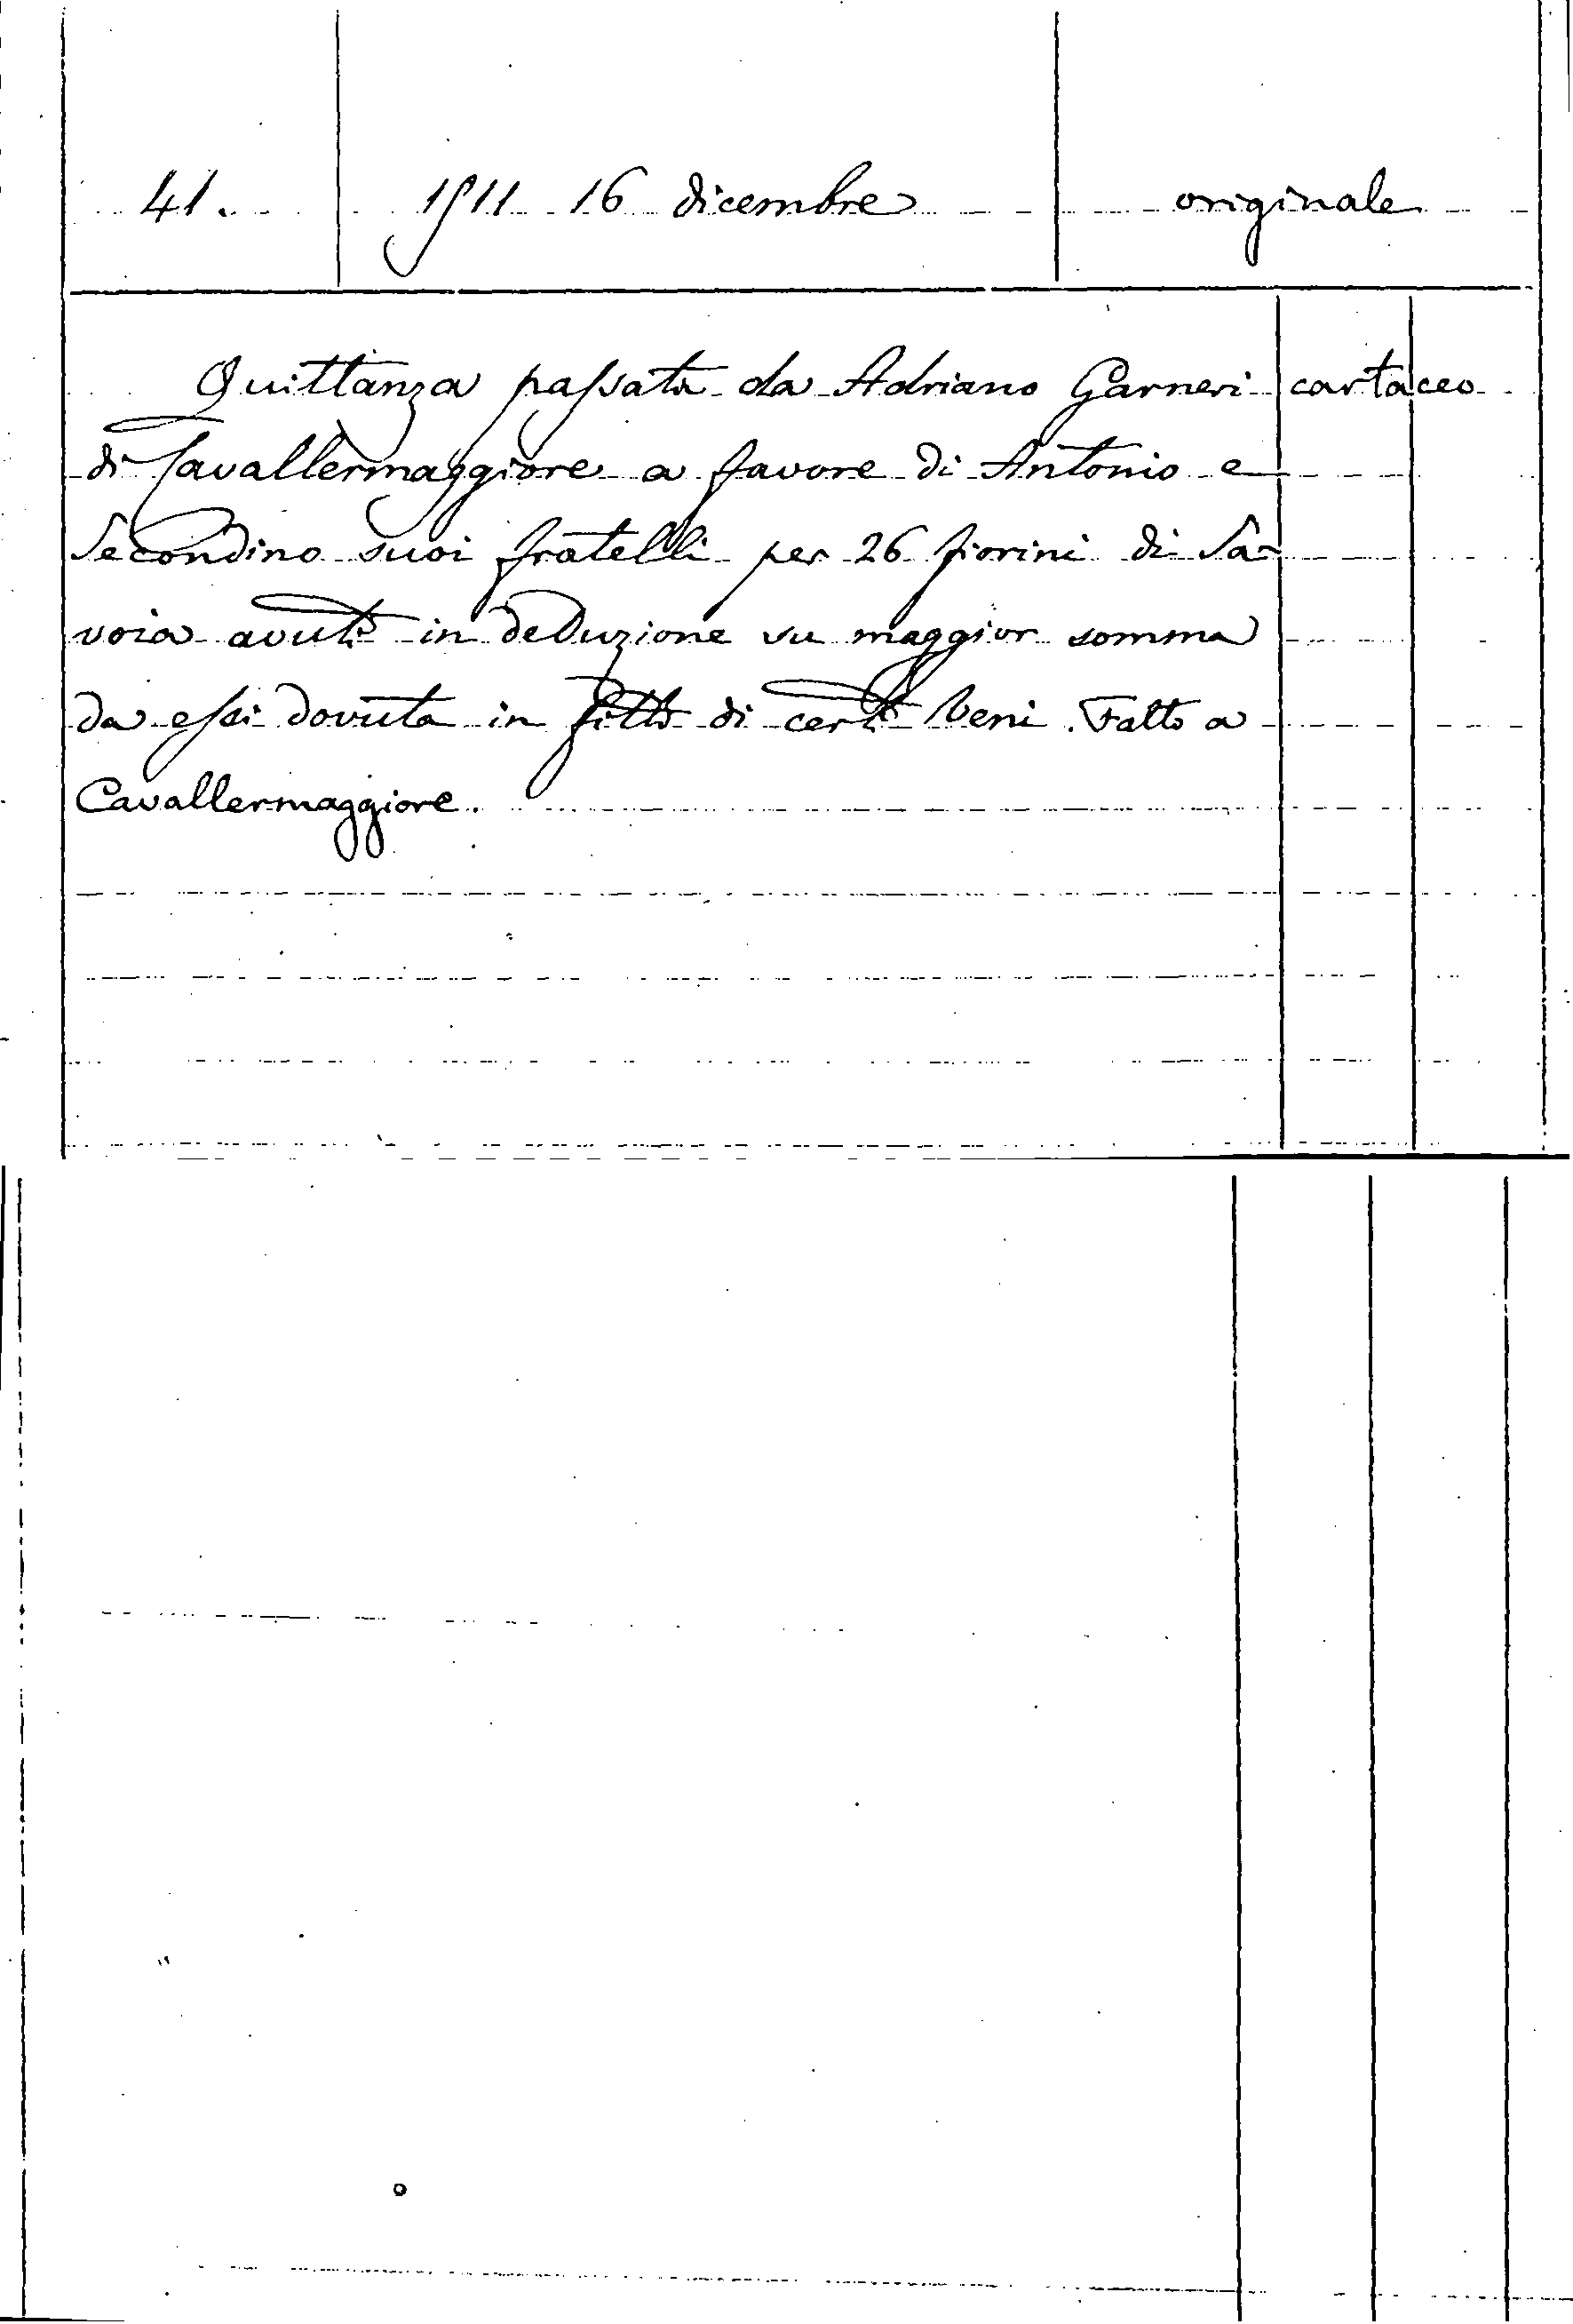 41. 1511 16 dicembre originale
Quittanza passata da Adriano Garneri cartaceo
di Cavallermaggiore a favore di Antonio e
Secondino suoi fratelli per 26 fiorini di Sa-
voia avuti in deduzione su maggior somma
da essi dovuta in fitto di certi beni. Fatto a
Cavallermaggiore.